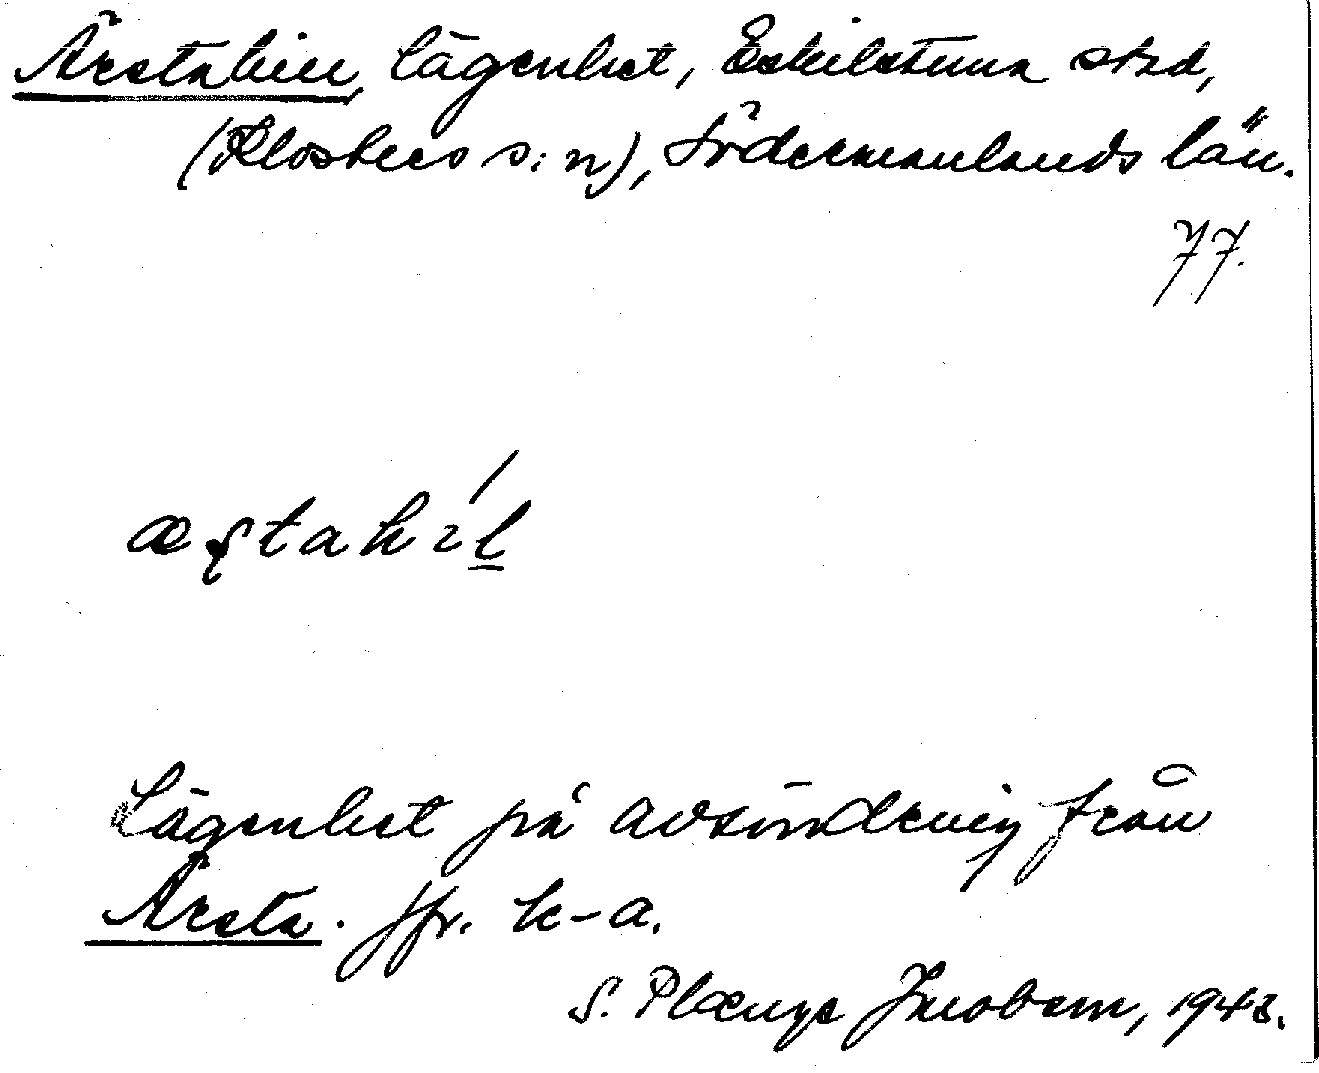 Ärstahill, lägenhet, Eskilstuna stad,
(Klosters s:n), Södermanlands län.
77.
Lägenhet på avsöndring från
Ärsta. Jfr. k-a.
S. Plænge Jacobson, 1948.